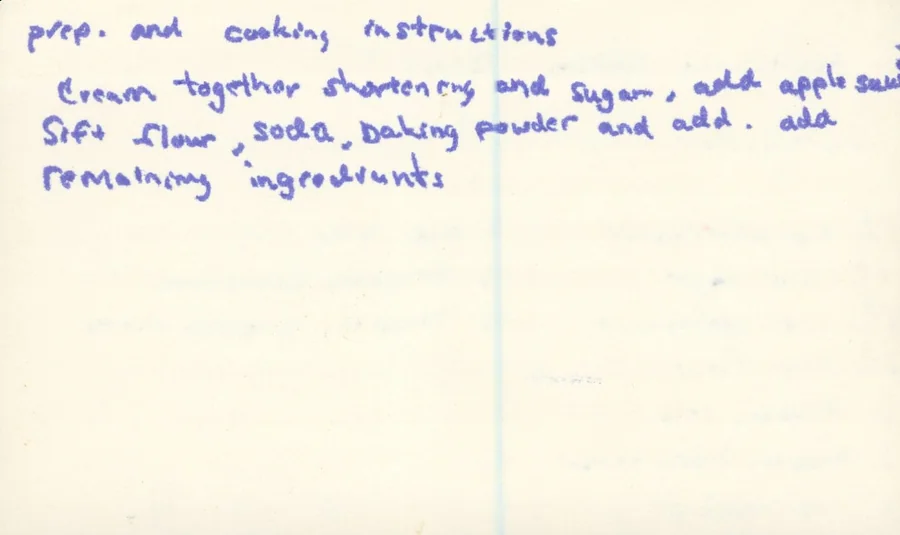 prep. and cooking instructions
Cream together shortening and sugar, add apple sau
Sift flour, soda, baking powder and add. add
remaining ingredients